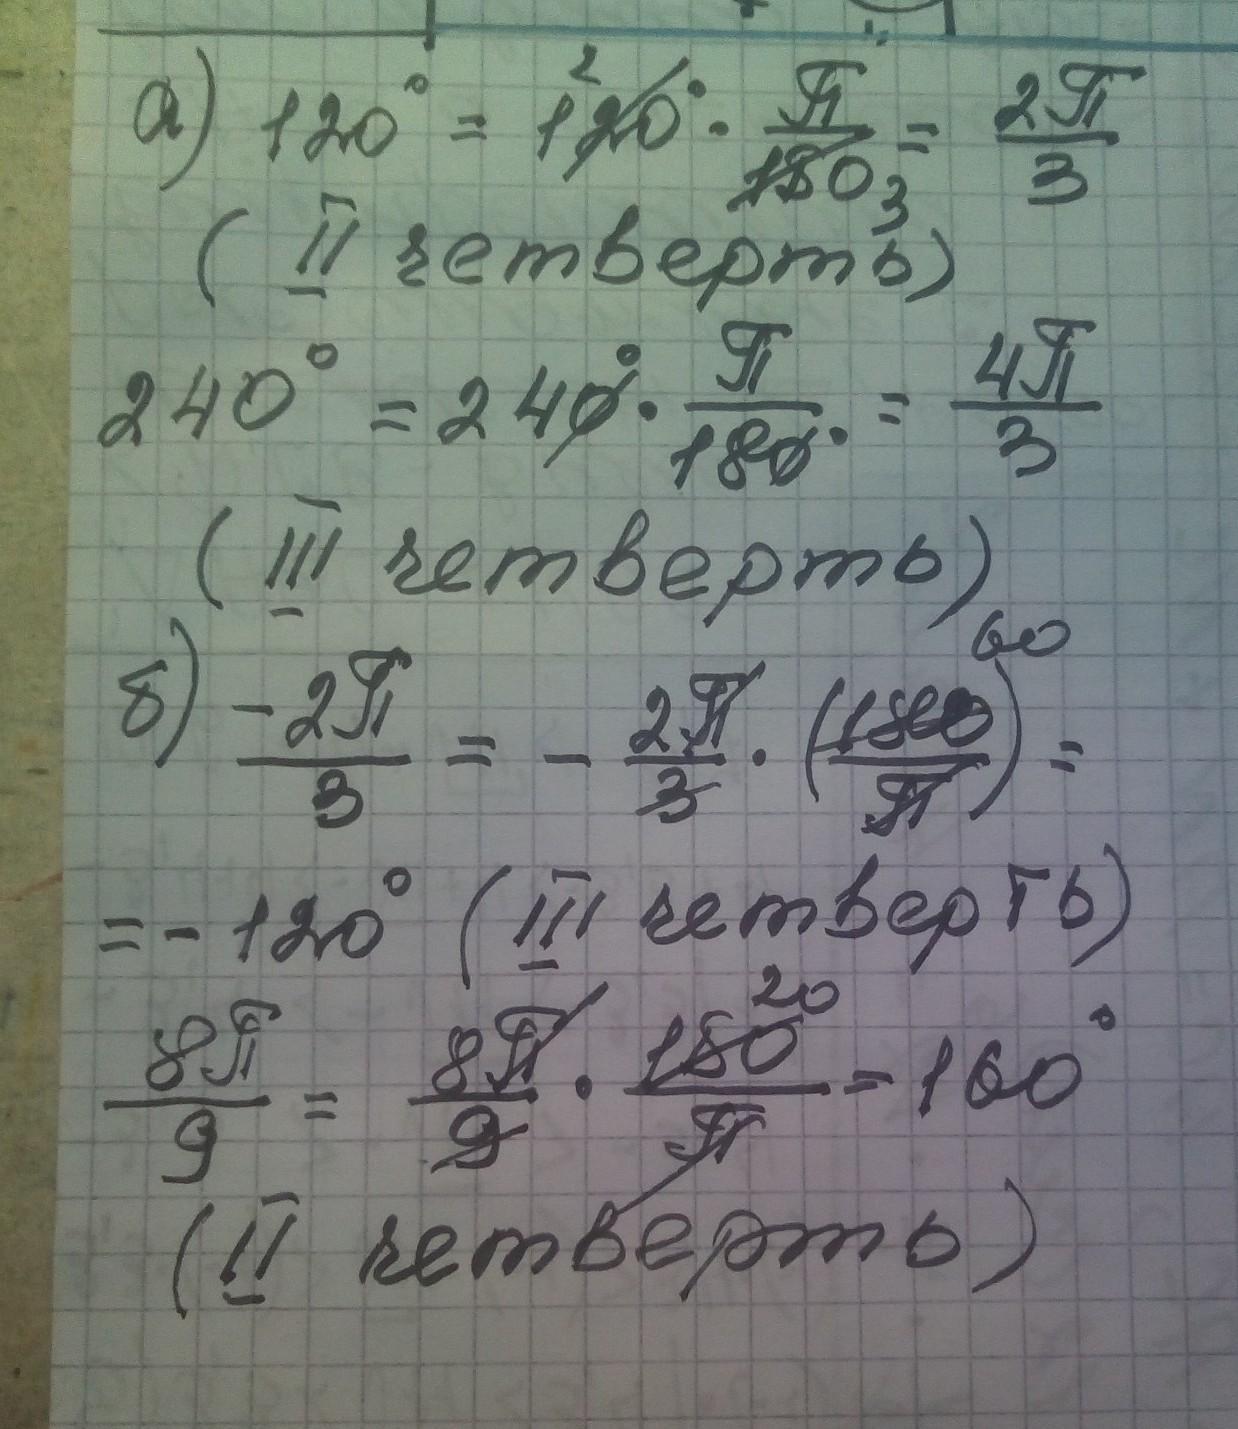 а) 120° = 120° · π/180 = 2π/3
2 3
(II четверть)
240° = 240° · π/180° = 4π/3
(III четверть)
б) -2π/3 = - 2π/3 · (180/π) =
60
= - 120° (III четверть)
8π/9 = 8π/9 · 180/π = 160°
20
(II четверть)